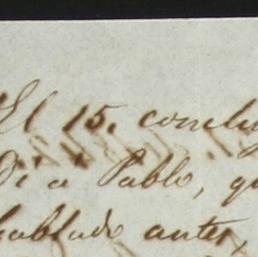 El 15. conclu
Di a Pablo, qu
hablado antes,